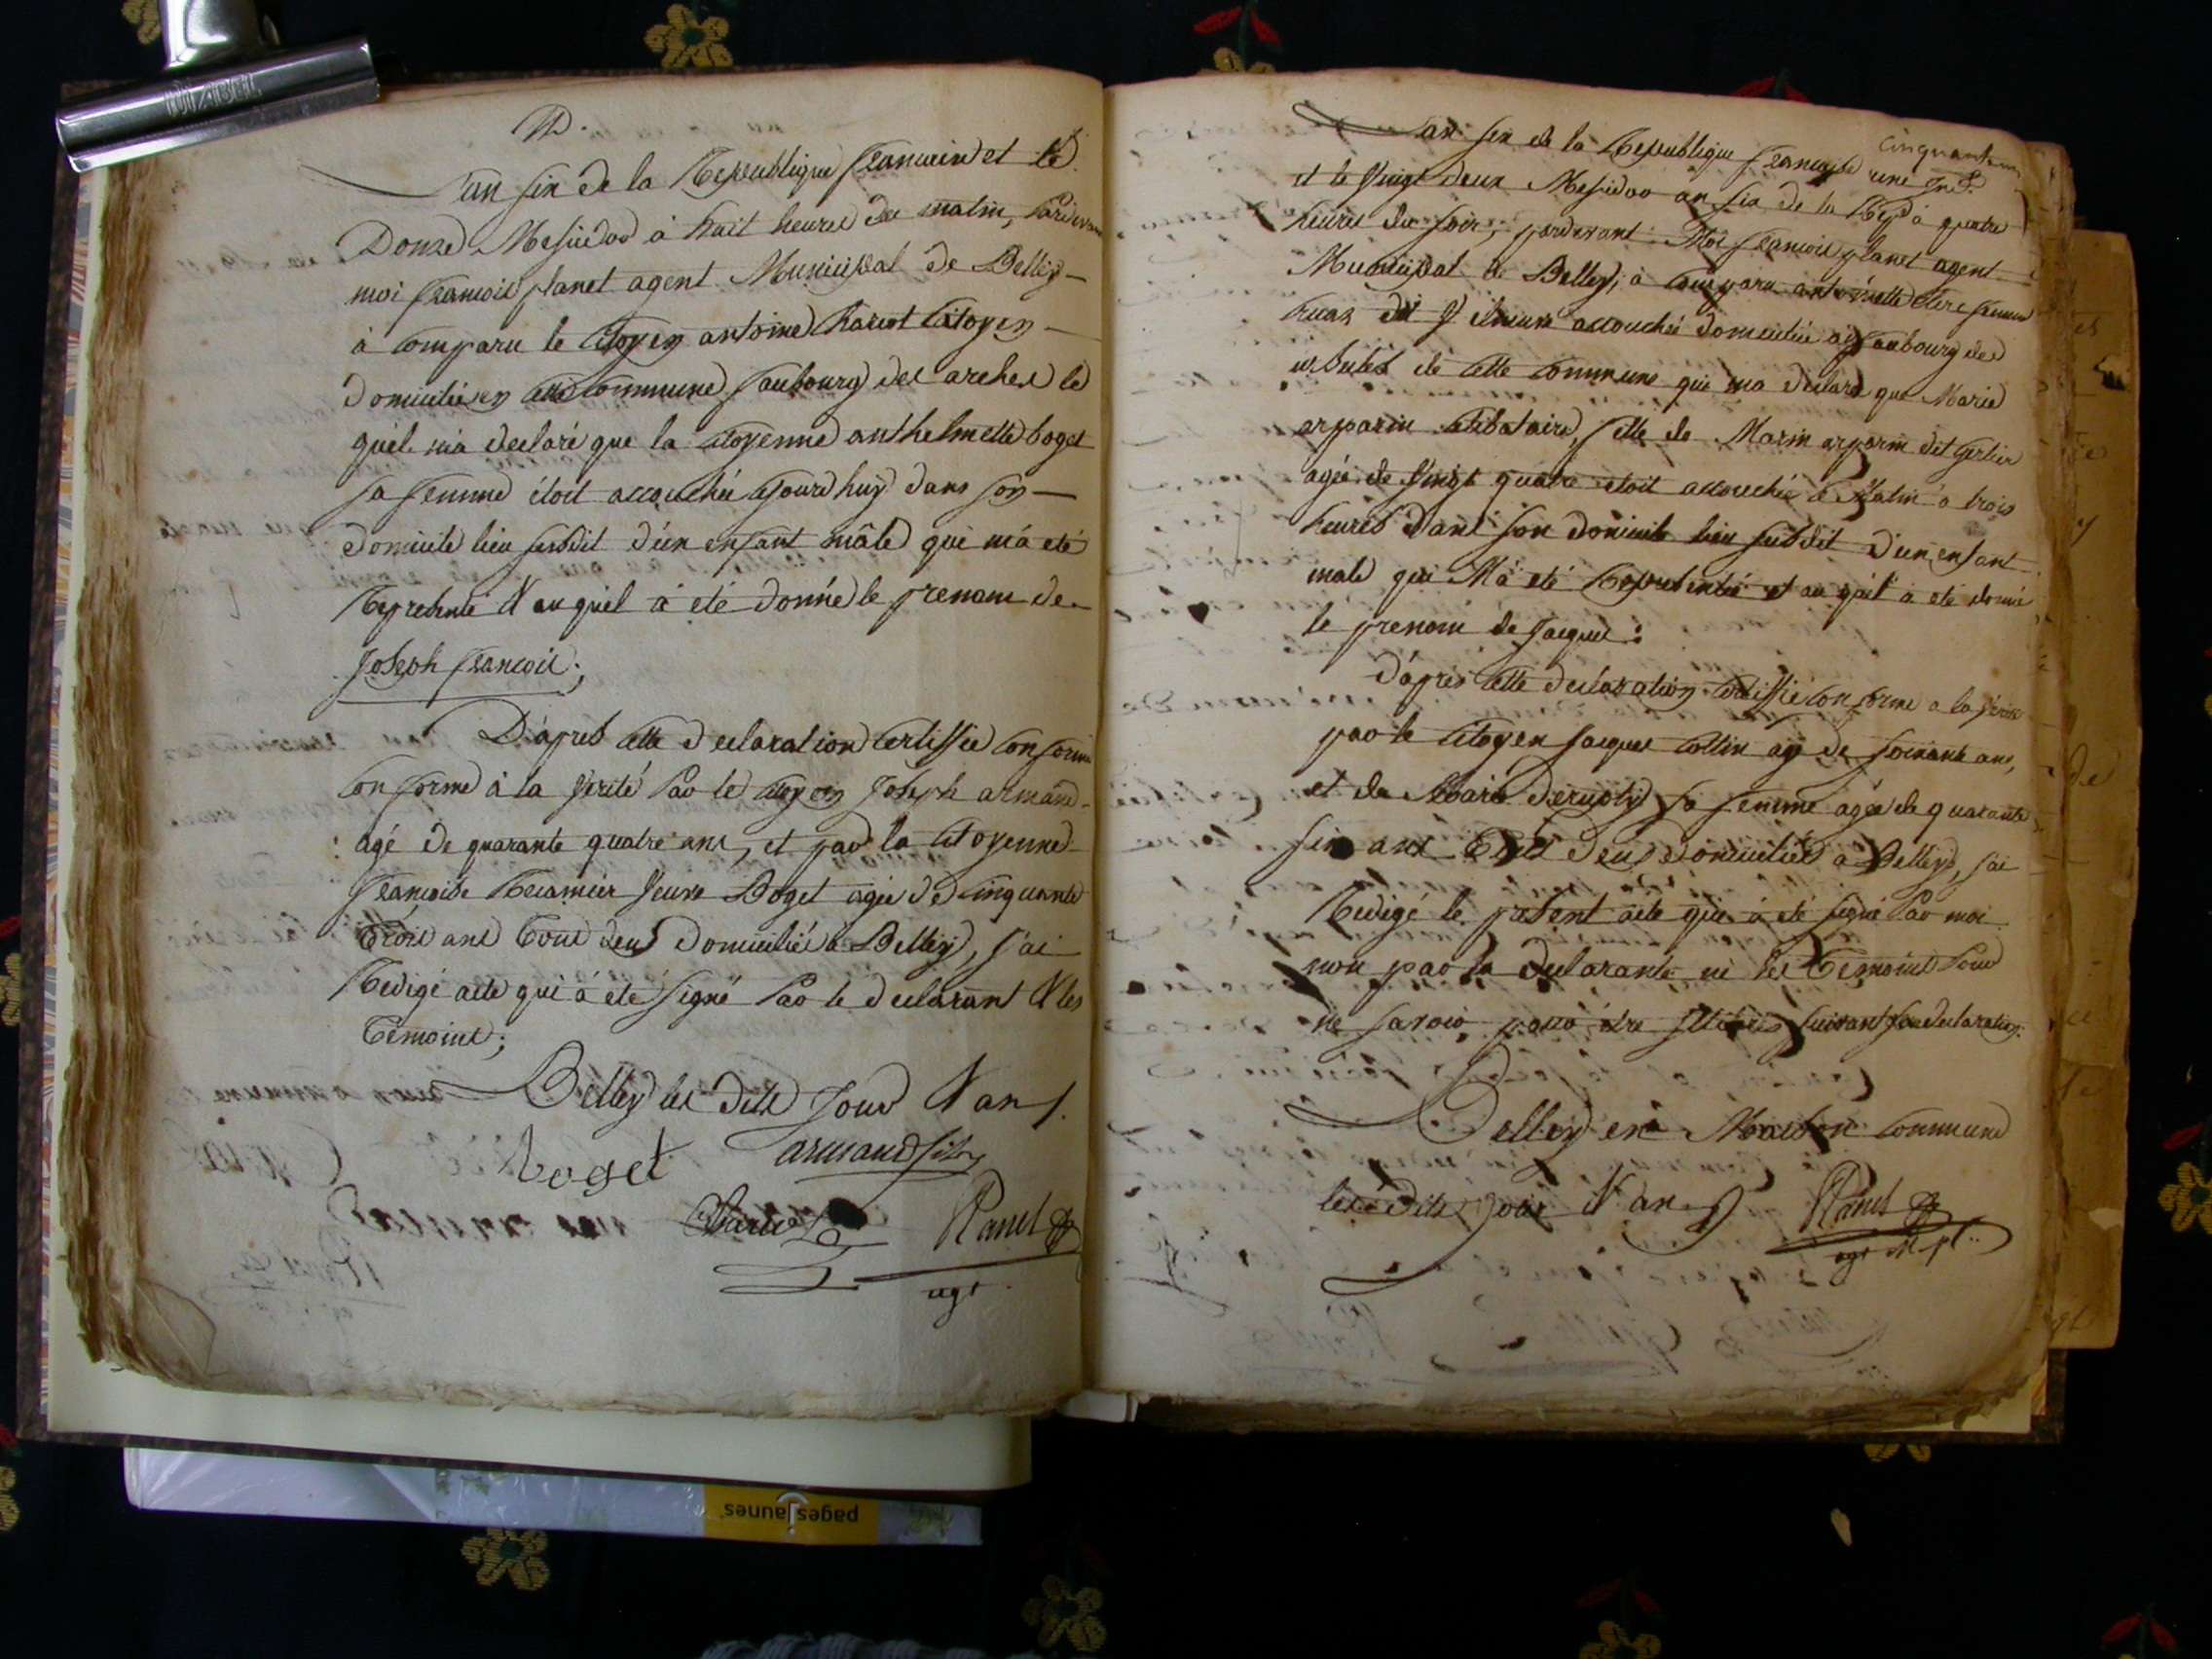 N.
L'an six de la République francaise et le
Douze Messidor à huit heures du matin, Pardevant
moi francois planet agent Municipal de Belley
à comparu le Citoyen antoine Citoyen
domicilié en cette commune faubourg des arches le
quel m'a declaré que la citoyenne anthelmette boget
sa femme étoit accouchée ajourdhuy dans son
domicile lieu susdit d'un enfant mâle qui m'a eté
Représenté & au quel à eté donné le prenom de
Joseph francois;
D'aprés cette declaration certiffiée conforme
conforme à la verité Par le citoyen Joseph armand
agé de quarante quatre ans, et par la Citoyenne
françoise Recamier veuve Boget agée de cinquante
trois ans tous deux domiciliés a Belley, j'ai
Redigé acte qui à eté signé Par le declarant & les
temoins;
Belley les dits Jour & an /.
boget armand fils
Planet
agt
Cinquante
une
L'an six de la République francaise
et le vingt deux Messidor an six de la Rep à quatre
heures du soir, pardevant Moi francois planet agent
Municipal de Belley, à comparu antoinette femme
accouchée domiciliée au faubourg des
de cette commune qui ma declaré que Marie
arparin celibataire, fille de Marin arparin dit
agée de vingt quatre etoit accouchée ce Matin à trois
heures dans son domicile lieu susdit d'un enfant
male qui M'a eté Représenté et au quel à eté donné
le prenom de Jacques:
d'aprés cette declaration certiffié conforme a la verité
par le citoyen Jacques Collin agé de soixante ans,
et de Marie sa femme agée de quarante
six ans Tous deux domiciliés à Belley, j'ai
Redigé le present acte qui à eté signé Par moi
non par la declarante ni les Temoins Pour
ne savoir pour etre suivant sa declaration.
Belley en Maison commune
les dits jour & an Planet
agt M pl
DIABEL
pagesjaunes